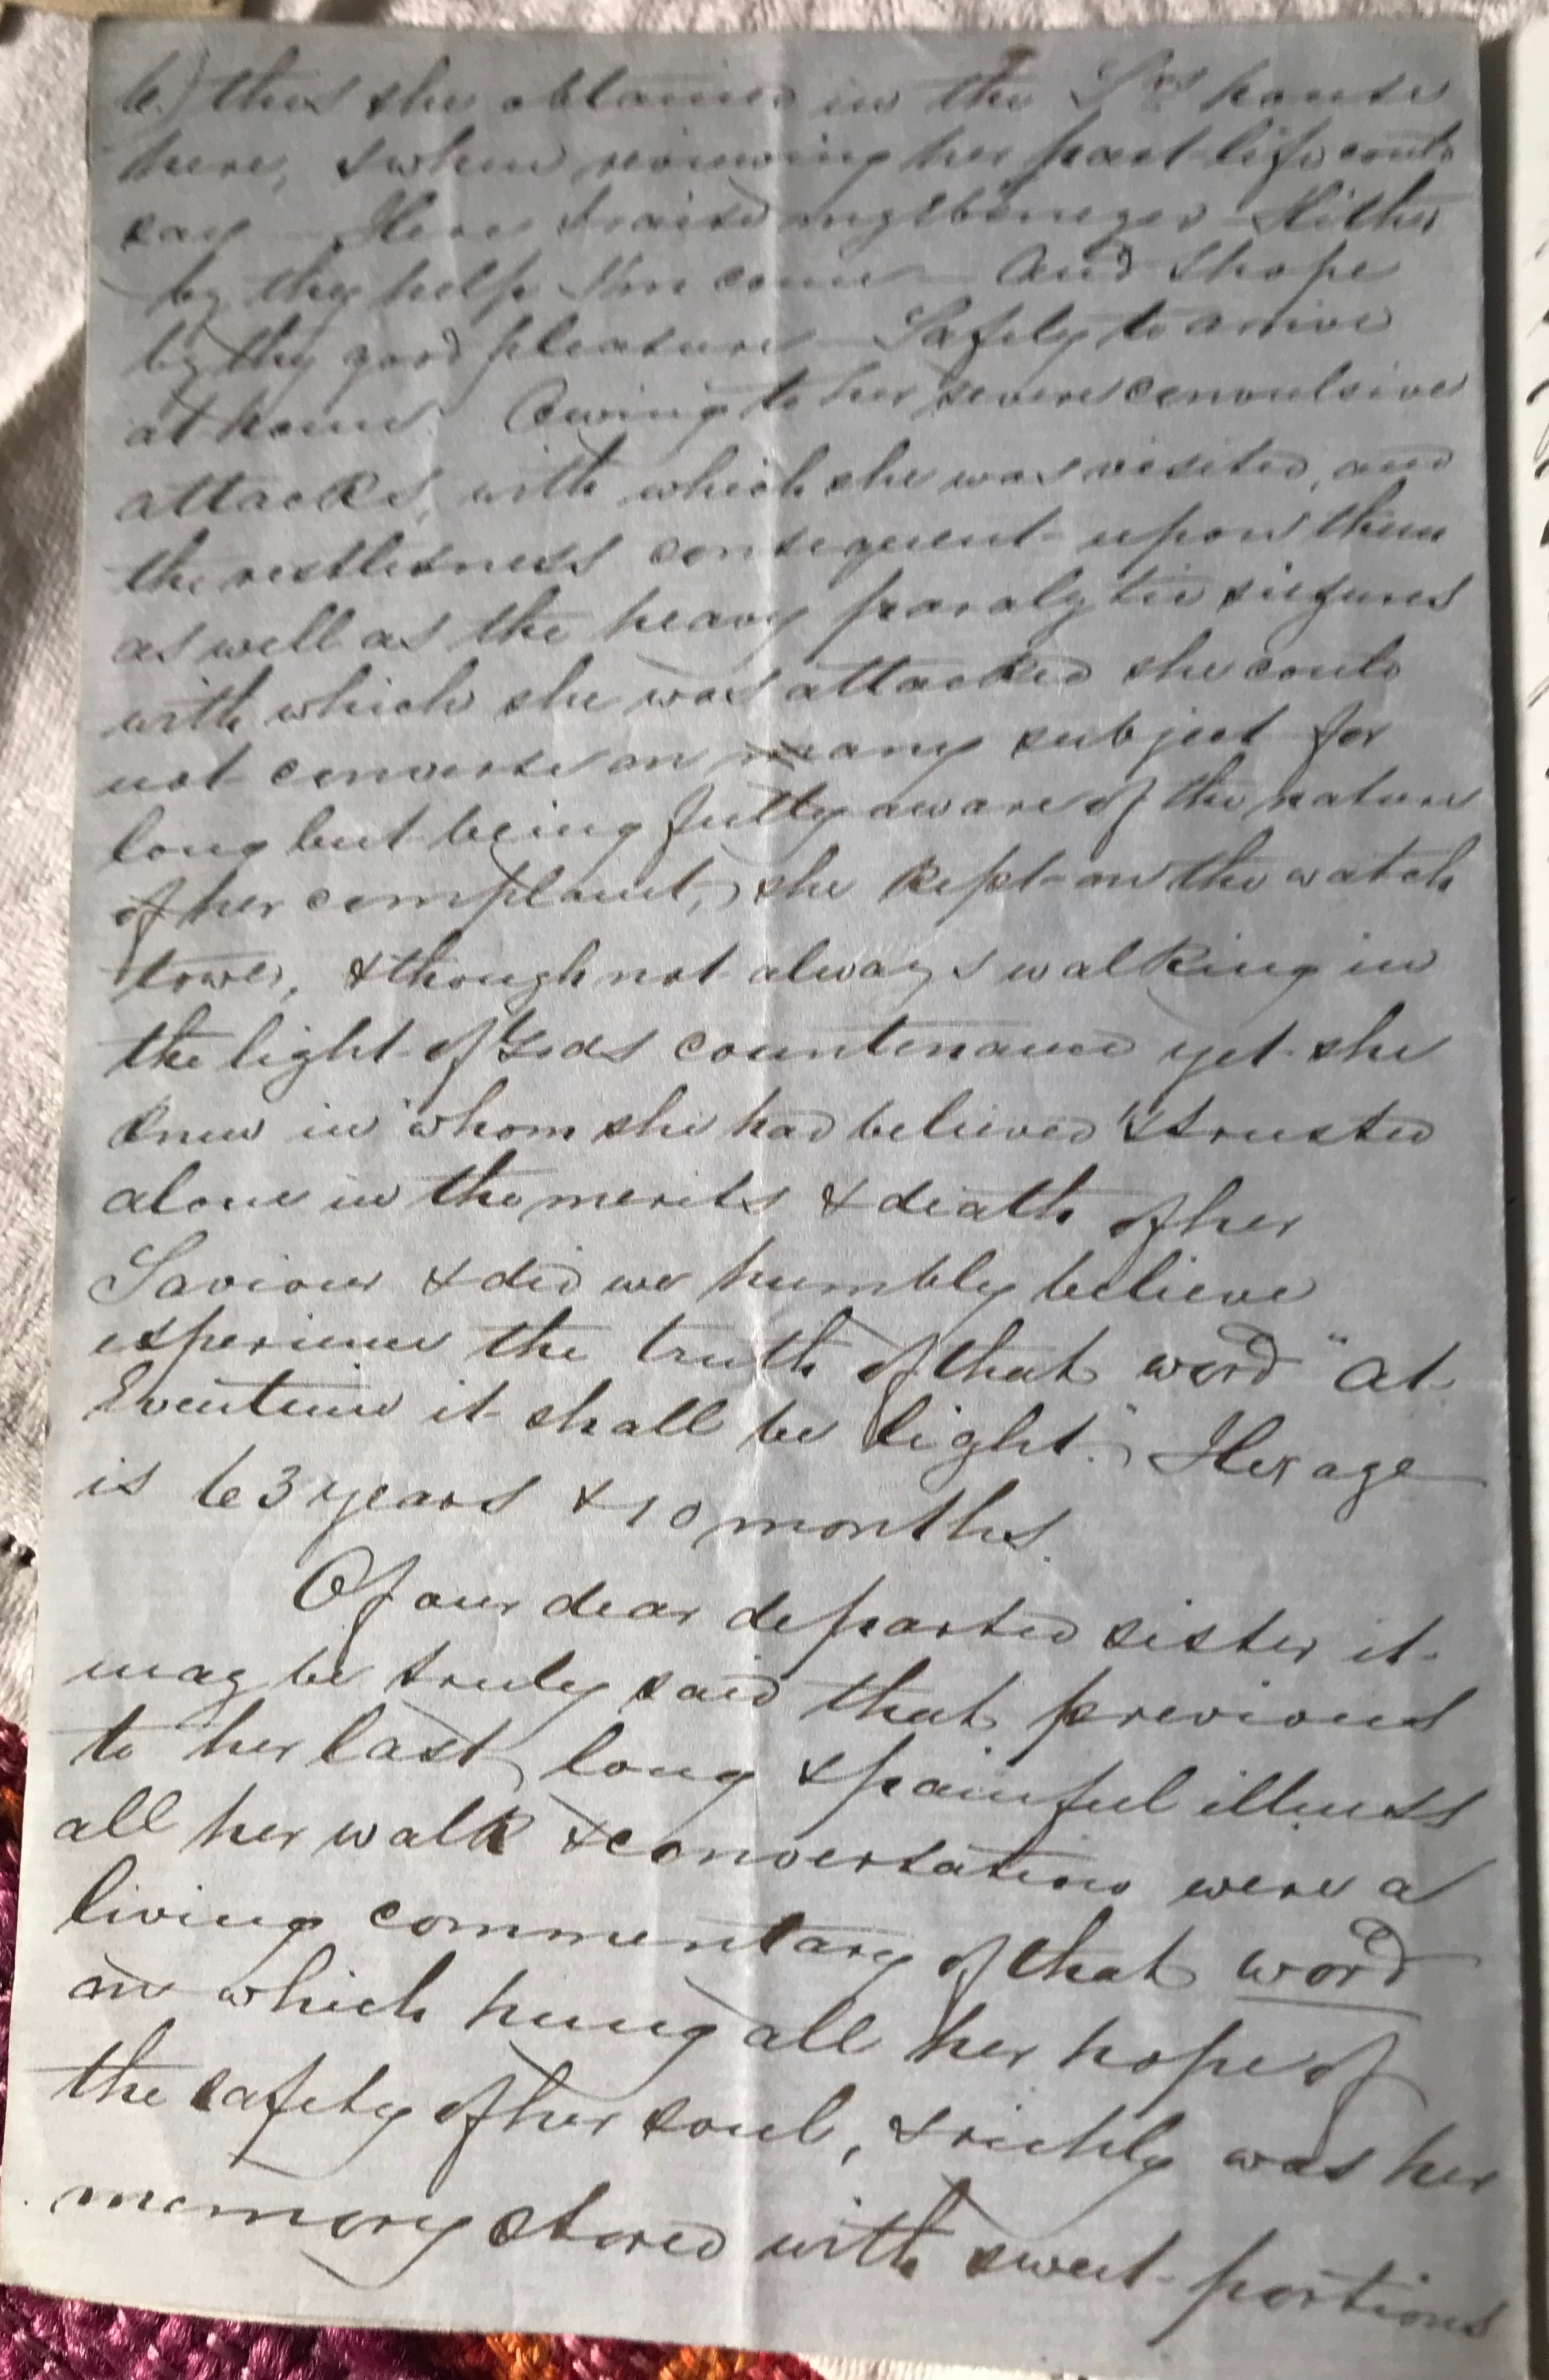 6.) this she obtained in the Srs house
here, & when reviewing her past life could
say — Here I raise my Ebenezer — Hither
by thy help I'm come — And I hope
by thy good pleasure — Safely to arrive
at home. Owing to her severe convulsive
attacks, with which she was visited, and
the restlesness consequent upon them
as well as the heavy paralytic siezures
with which she was attacked she could
not converse on many subject for
long but being fully aware of the nature
of her complaint, she kept on the watch
tower, & though not always walking in
the light of Gods countenance yet she
knew in whom she had believed & trusted
alone in the merits & death of her
Saviour & did we humbly believe
experience the truth of that word "At
Eventime it shall be light." Her age
is 63 years & 10 months.
Of our dear departed sister it
may be truly said that previous
to her last, long & painful illness
all her walk & conversation were a
living commentary of that word
on which hung all her hope of
the safety of her soul, & richly was her
memory stored with sweet portions